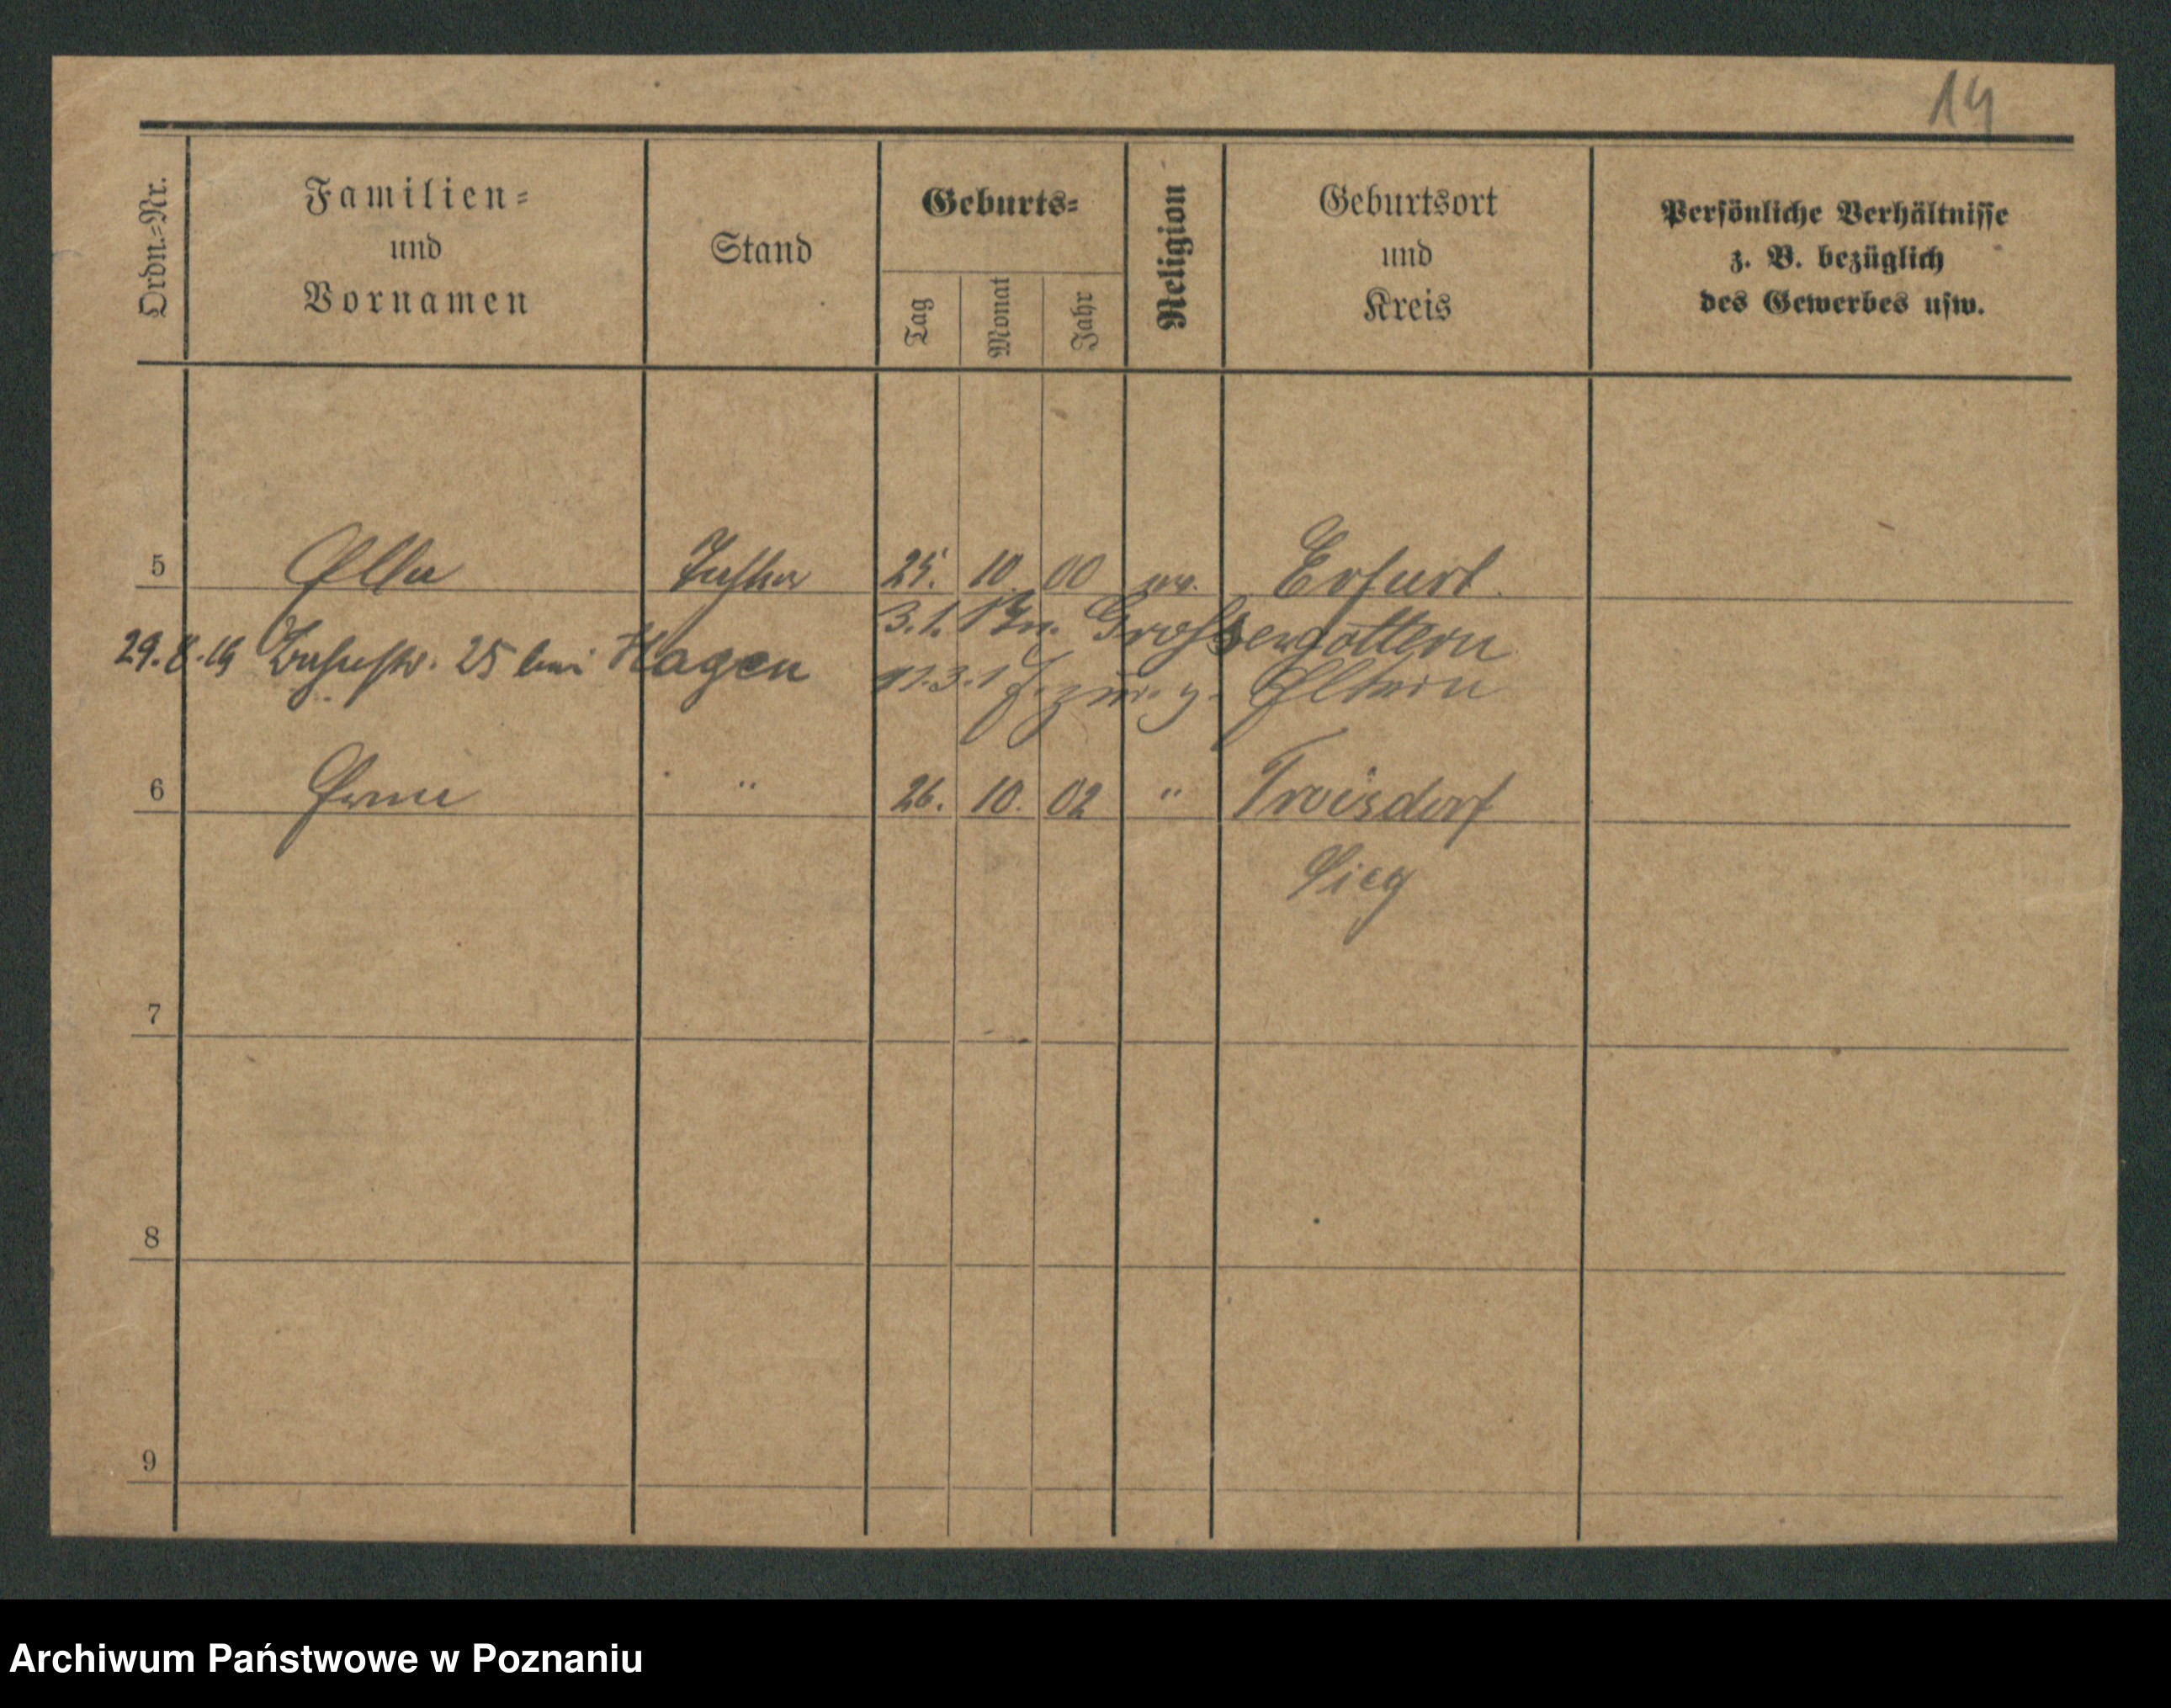 14
Ordn.-Nr.
Familien-
und
Vornamen
Stand
Geburts-
Tag
Monat
Jahr
Religion
Geburtsort
und
Kreis
Persönliche Verhältnisse
z. B. bezüglich
des Gewerbes usw.
5 Ella Tochter 25. 10. 00 ev. Erfurt.
3.1. Grossengottern
29.8.19 25 bei Hagen
z. Eltern
6 Erna " 26. 10. 02 " Troisdorf
Sieg
7
8
9
Archiwum Państwowe w Poznaniu